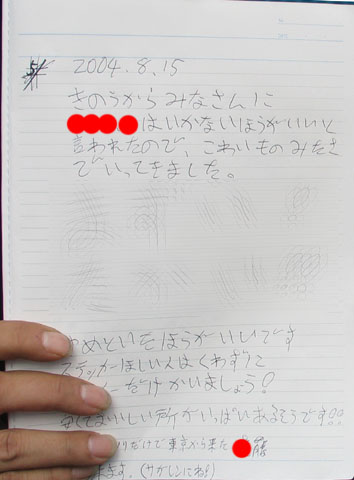 2004.8.15
きのうから みなさんに
はいかないほうがいいと
言われたので、こわいものみたさ
でいってきました。
めといたほうがいいです
ステッカーほしい人はくわずに
だけかいましょう!
安くておいしい所がいっぱいあるそうです!!
だけで東京から来た 藤
ます。